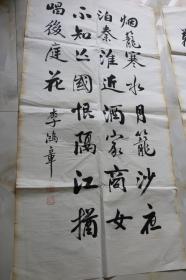 烟籠寒水月籠沙夜
泊秦淮近酒家商女
不知亡國恨隔江猶
唱後庭花
李鴻章